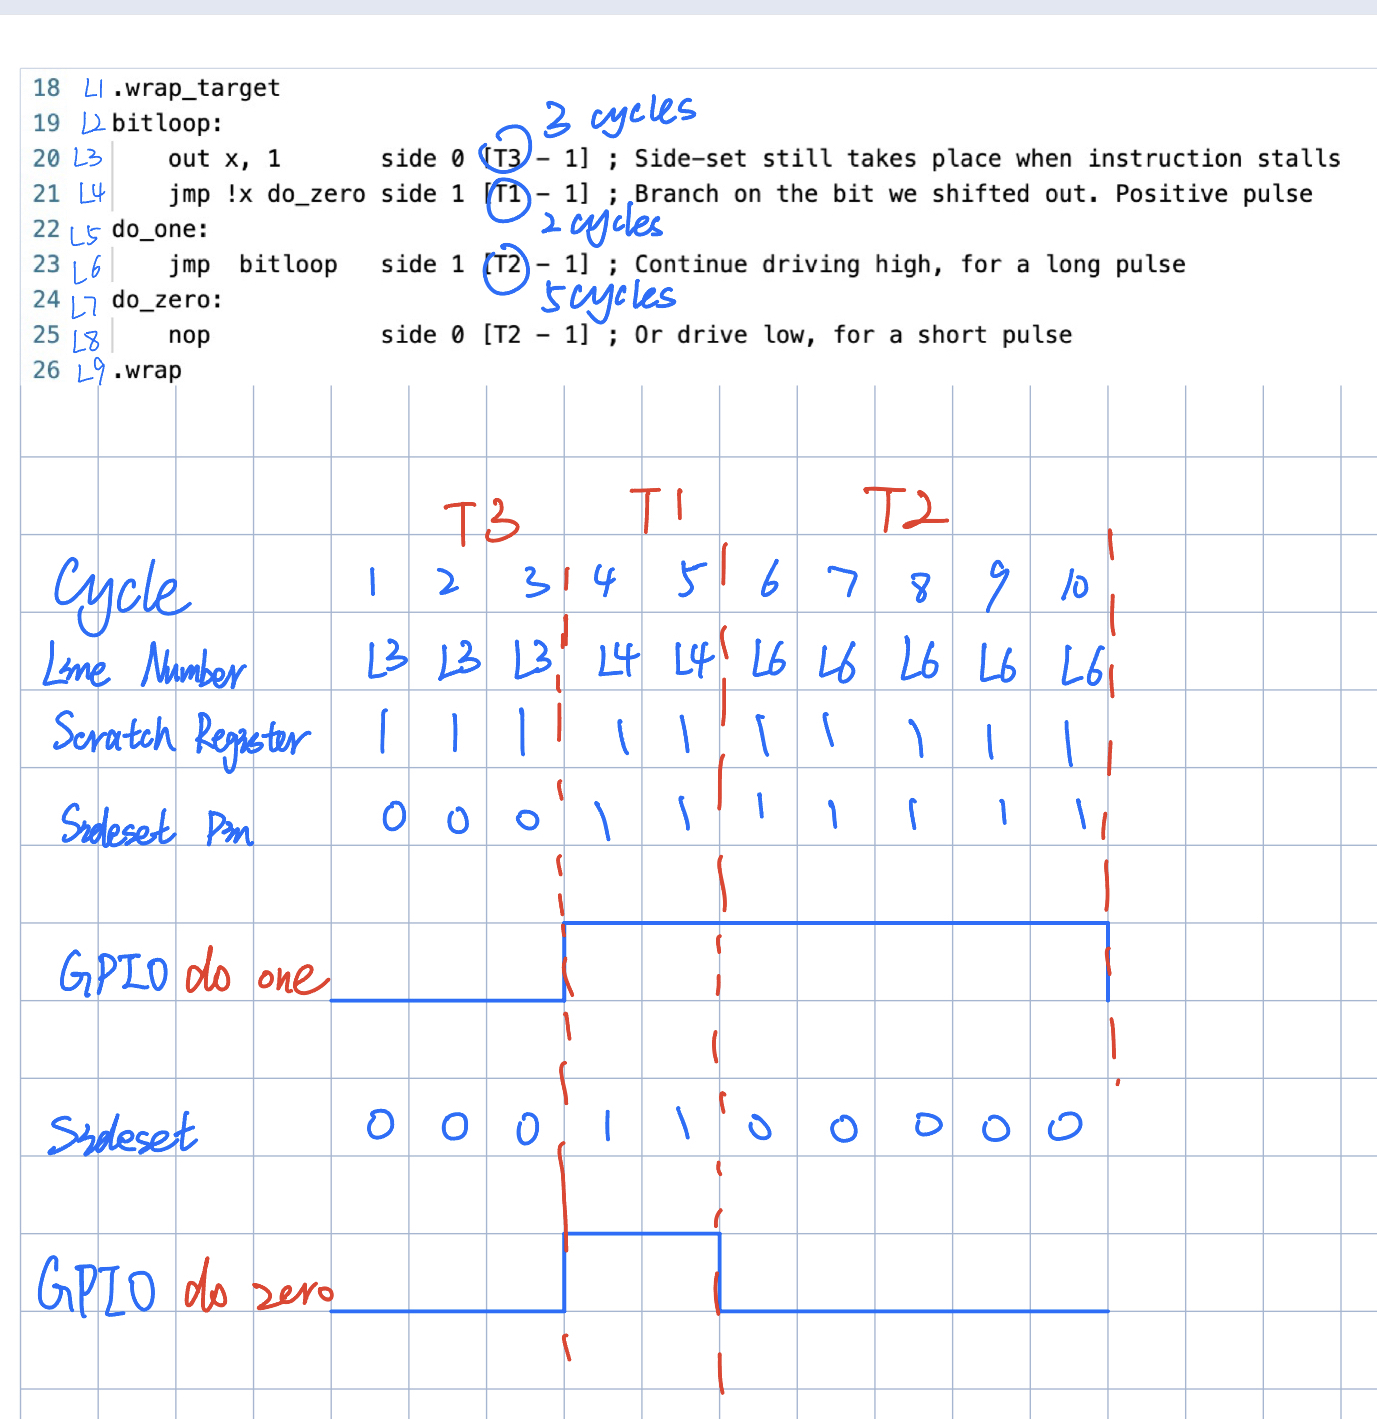 18 L1 .wrap_target
3 cycles
19 L2 bitloop:
20 L3 out x, 1 side 0 [T3 - 1] ; Side-set still takes place when instruction stalls
21 L4 jmp !x do_zero side 1 [T1 - 1] ; Branch on the bit we shifted out. Positive pulse
22 L5 do_one: 2 cycles
23 L6 jmp bitloop side 1 [T2 - 1] ; Continue driving high, for a long pulse
24 L7 do_zero: 5 cycles
25 L8 nop side 0 [T2 - 1] ; Or drive low, for a short pulse
26 L9 .wrap
T3 T1 T2
Cycle 1 2 3 4 5 6 7 8 9 10
Line Number L3 L3 L3 L4 L4 L6 L6 L6 L6 L6
Scratch Register 1 1 1 1 1 1 1 1 1 1
Sideset Pin 0 0 0 1 1 1 1 1 1 1
GPIO do one
Sideset 0 0 0 1 1 0 0 0 0 0
GPIO do zero